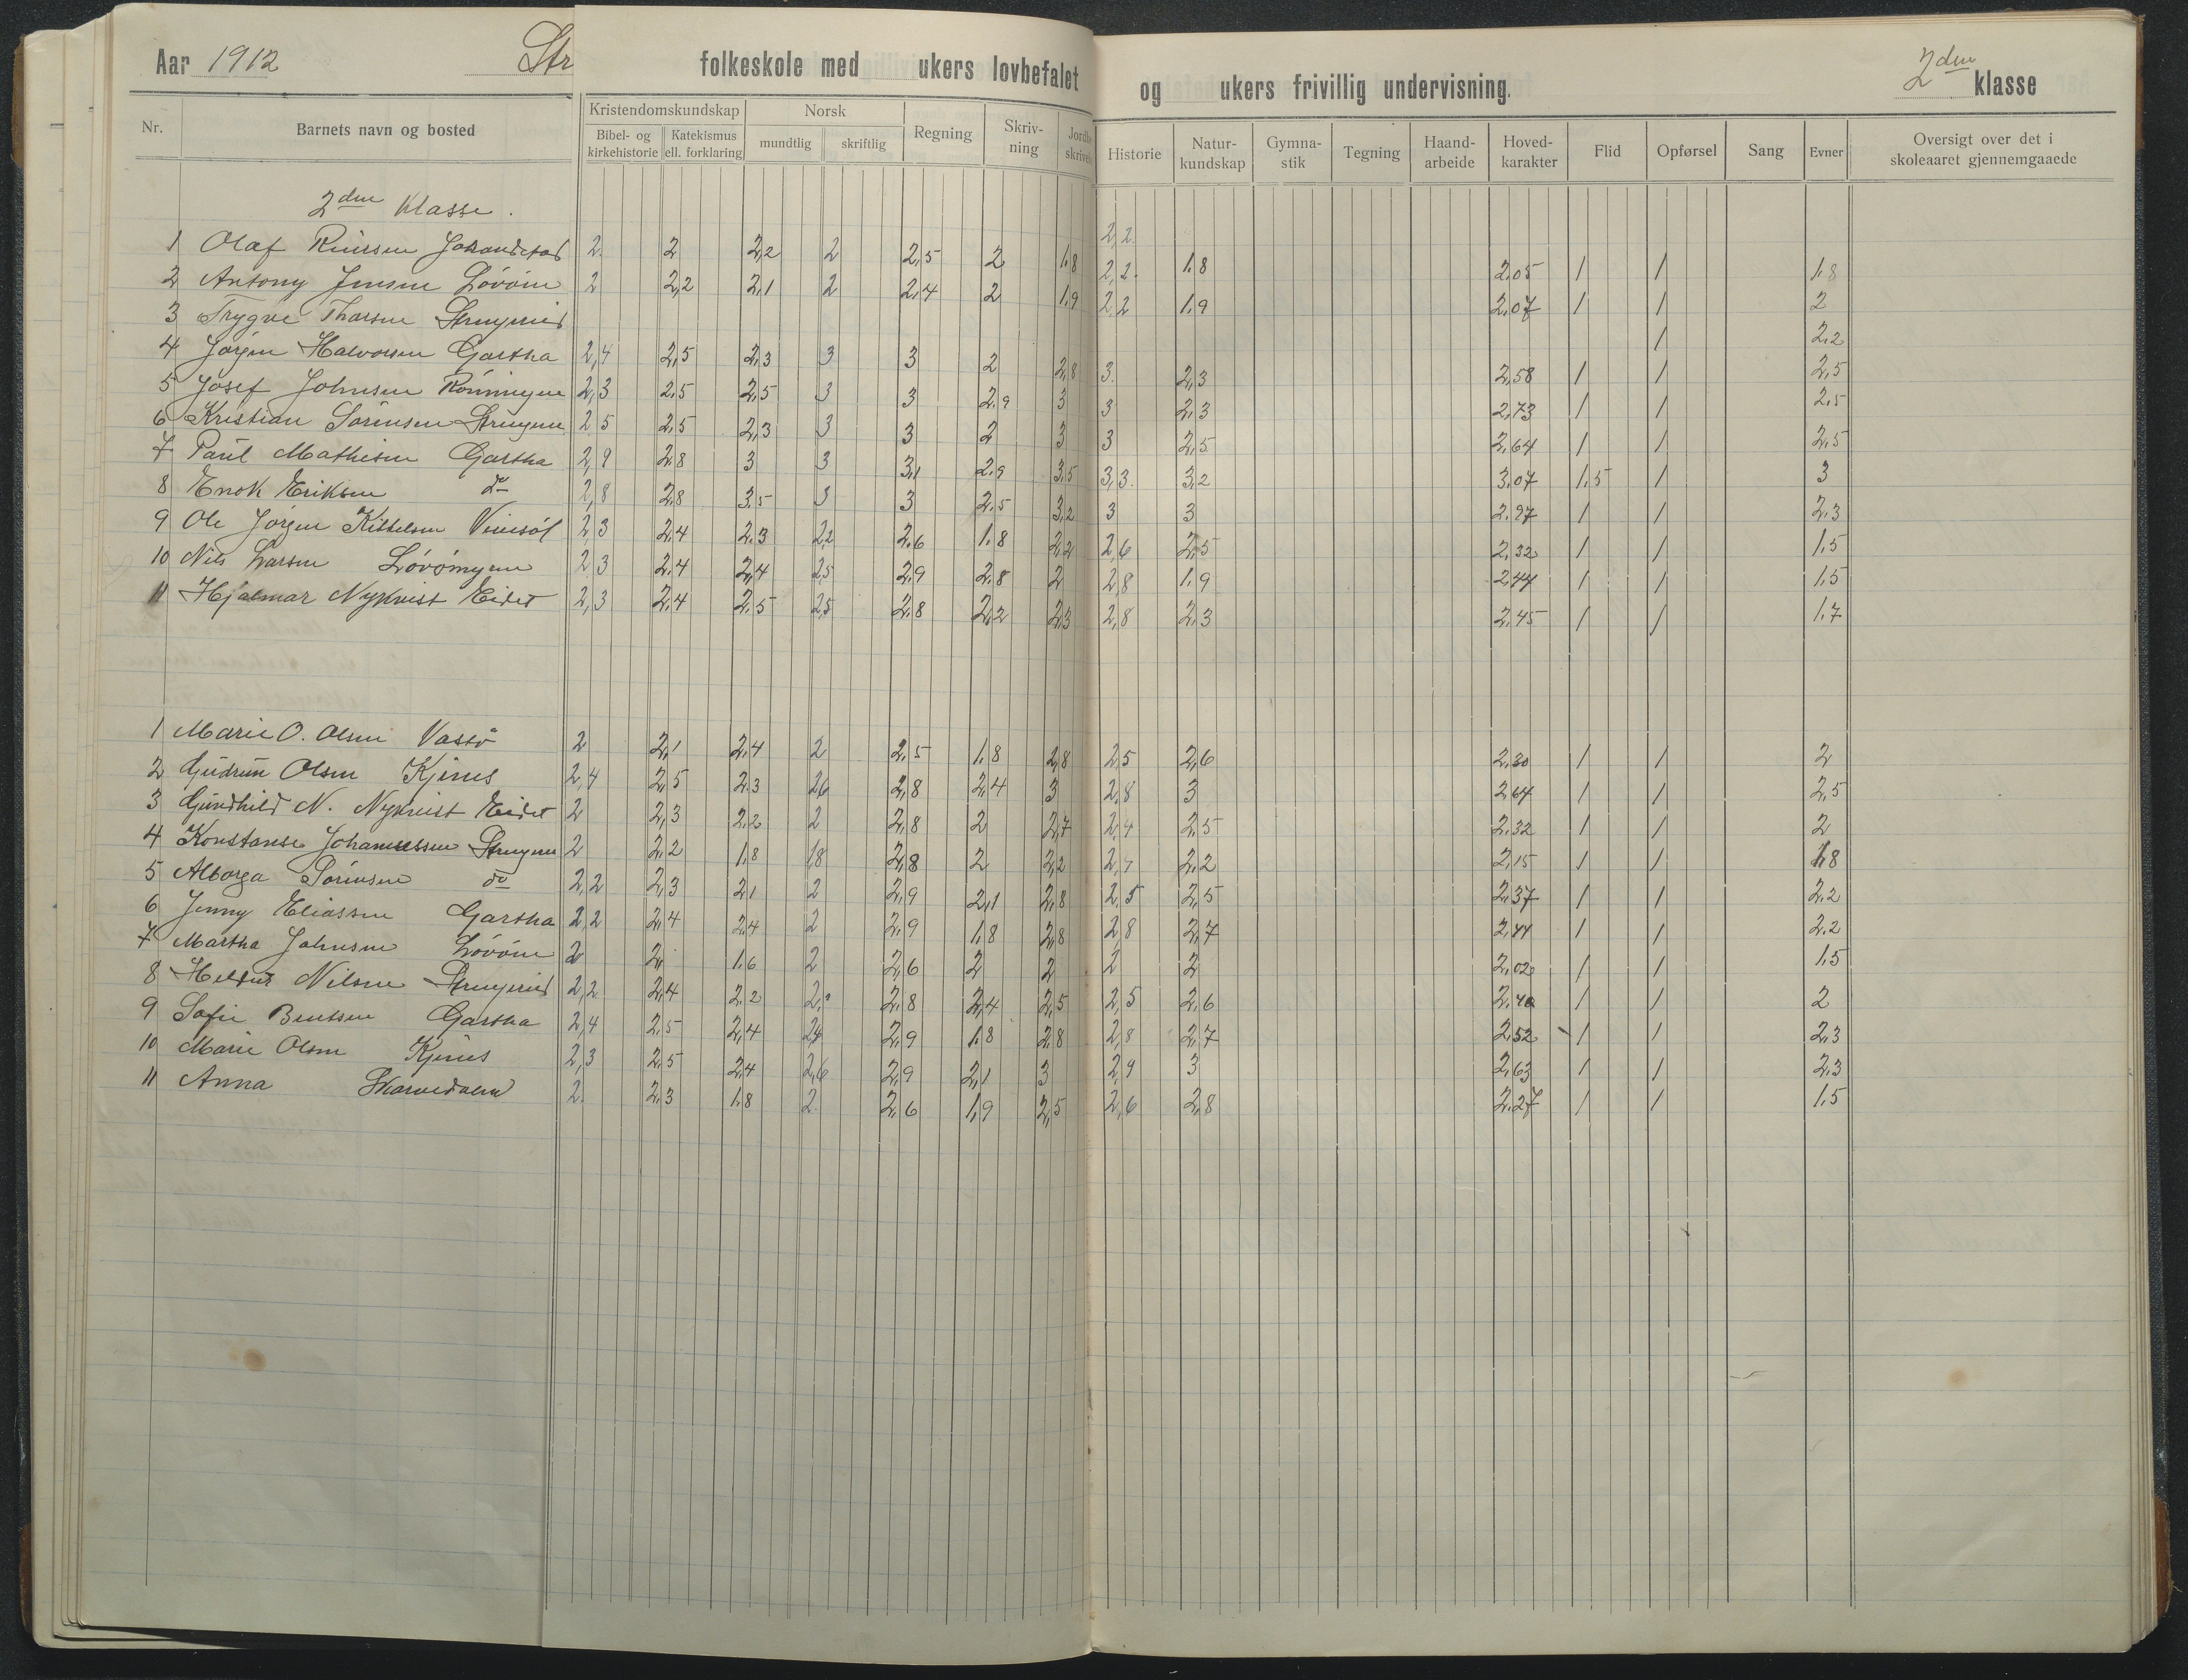 Aar 1912 Str folkeskole med ukers lovbefalet og ukers frivillig undervisning. 2den klasse
Nr. Barnets navn og bosted Kristendomskundskap Norsk Regning Skriv-ning Jordbe skrivel Historie Natur-kundskap Gymna-stik Tegning Haand-arbeide Hoved-karakter Flid Opførsel Sang Evner Oversigt over det i skoleaaret gjennemgaaede
Bibel- og kirkehistorie Katekismus ell. forklaring mundtlig skriftlig
2den Klasse.
2,2
1 Olaf 2 2 2,2 2 2,5 2 1,8 2,2 1,8 2,05 1 1 1,8
2 Antony Jensen 2 2,2 2,1 2 2,4 2 1,9 2,2 1,9 2,07 1 1 2
3 Trygve Thorsen 1 2,2
4 Jørgen Halvorsen Gartha 2,4 2,5 2,3 3 3 2 2,8 3 2,3 2,58 1 1 2,5
5 Josef Johnsen Rönningen 2,3 2,5 2,5 3 3 2,9 3 3 2,3 2,73 1 1 2,5
6 Kristian Sörensen 2,5 2,5 2,3 3 3 2 3 3 2,5 2,64 1 1 2,5
7 Paul Mathisen Gartha 2,9 2,8 3 3 3,1 2,9 3,5 3,3 3,2 3,07 1,5 1 3
8 Enok Eriksen do 2,8 2,8 3,5 3 3 2,5 3,2 3 3 2,97 1 1 2,3
9 Ole Jörgen Kittelsen 2,3 2,4 2,3 2,2 2,6 1,8 2,2 2,6 2,5 2,32 1 1 1,5
10 Nils Larsen Lövömyren 2,3 2,4 2,4 2,5 2,9 2,8 2 2,8 1,9 2,44 1 1 1,5
11 Hjalmar Nykvist Eidet 2,3 2,4 2,5 2,5 2,8 2,2 2,3 2,8 2,3 2,45 1 1 1,7
1 Marie O. Olsen Vastö 2 2,1 2,4 2 2,5 1,8 2,8 2,5 2,6 2,30 1 1 2
2 Gudrun Olsen Kjenes 2,4 2,5 2,3 2,6 2,8 2,4 3 2,8 3 2,64 1 1 2,5
3 Gundhild N. Nykvist Eidet 2 2,3 2,2 2 2,8 2 2,7 2,4 2,5 2,32 1 1 2
4 Konstanse Johannessen 2 2,2 1,8 1,8 2,8 2 2,2 2,7 2,2 2,15 1 1 1,8
5 Alborga Sörensen do 2,2 2,3 2,1 2 2,9 2,1 2,8 2,5 2,5 2,37 1 1 2,2
6 Jenny Eliassen Gartha 2,2 2,4 2,4 2 2,9 1,8 2,8 2,8 2,7 2,44 1 1 2,2
7 Martha Johnsen 2 2, 1,6 2 2,6 2 2 2 2 2,02 1 1 1,5
8 Nilsen 2,2 2,4 2,2 2,2 2,8 2,4 2,5 2,5 2,6 2,40 1 1 2
9 Sofie Bentsen Gartha 2,4 2,5 2,4 2,4 2,9 1,8 2,8 2,8 2,7 2,52 1 1 2,3
10 Marie Olsen Kjenes 2,3 2,5 2,4 2,6 2,9 2,1 3 2,9 3 2,63 1 1 2,3
11 Anna 2 2,3 1,8 2 2,6 1,9 2,5 2,6 2,8 2,27 1 1 1,5